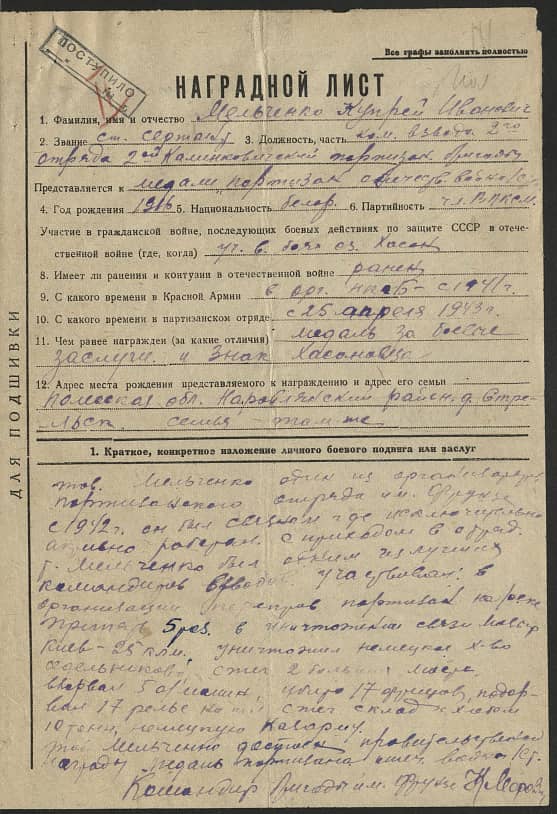 Все графы заполнять полностью
ПОСТУПИЛО
НАГРАДНОЙ ЛИСТ
1. Фамилия, имя и отчество Мельченко Купрей Иванович
2. Звание ст. сержант 3. Должность, часть ком. взвода 2го
отряда
Представляется к медали "партизан отечеств. войны
4. Год рождения 1916 5. Национальность белор. 6. Партийность чл. ВЛКСМ.
Участие в гражданской войне, последующих боевых действиях по защите СССР в отече-
ственной войне (где, когда) уч. в боях оз. Хасан
8. Имеет ли ранения и контузии в отечественной войне ранен
9. С какого времени в Красной Армии в орг. с 1941 г.
10. С какого времени в партизанском отряде с 25 апреля 1943 г.
11. Чем ранее награжден (за какие отличия) медаль за боевые
заслуги и знак Хасановца
12. Адрес места рождения представляемого к награждению и адрес его семьи
Полесская обл. Наровлянский район д.
семья - там-же
ДЛЯ ПОДШИВКИ
1. Краткое, конкретное изложение личного боевого подвига или заслуг
тов. Мельченко один из организаторов
партизанского отряда им. Фрунзе
с 1942 г. он был связным где исключительно
активно работал. с приходом в отряд
т. Мельченко был одним из лучших
командиров взводов. Участвовал: в
организации партизан на реке
Припять 5 раз. в уничтожении связи
Киев - 25 клм. уничтожил немецкое х-во
сжег 2 больших
взорвал 5 убито 17 фрицев, подор-
вал 17 рельс сжег склад с
10 тонн, немецкую казарму.
тов. Мельченко достоин правительственной
награды медаль партизана отеч. войны
Командир бригады им. Фрунзе